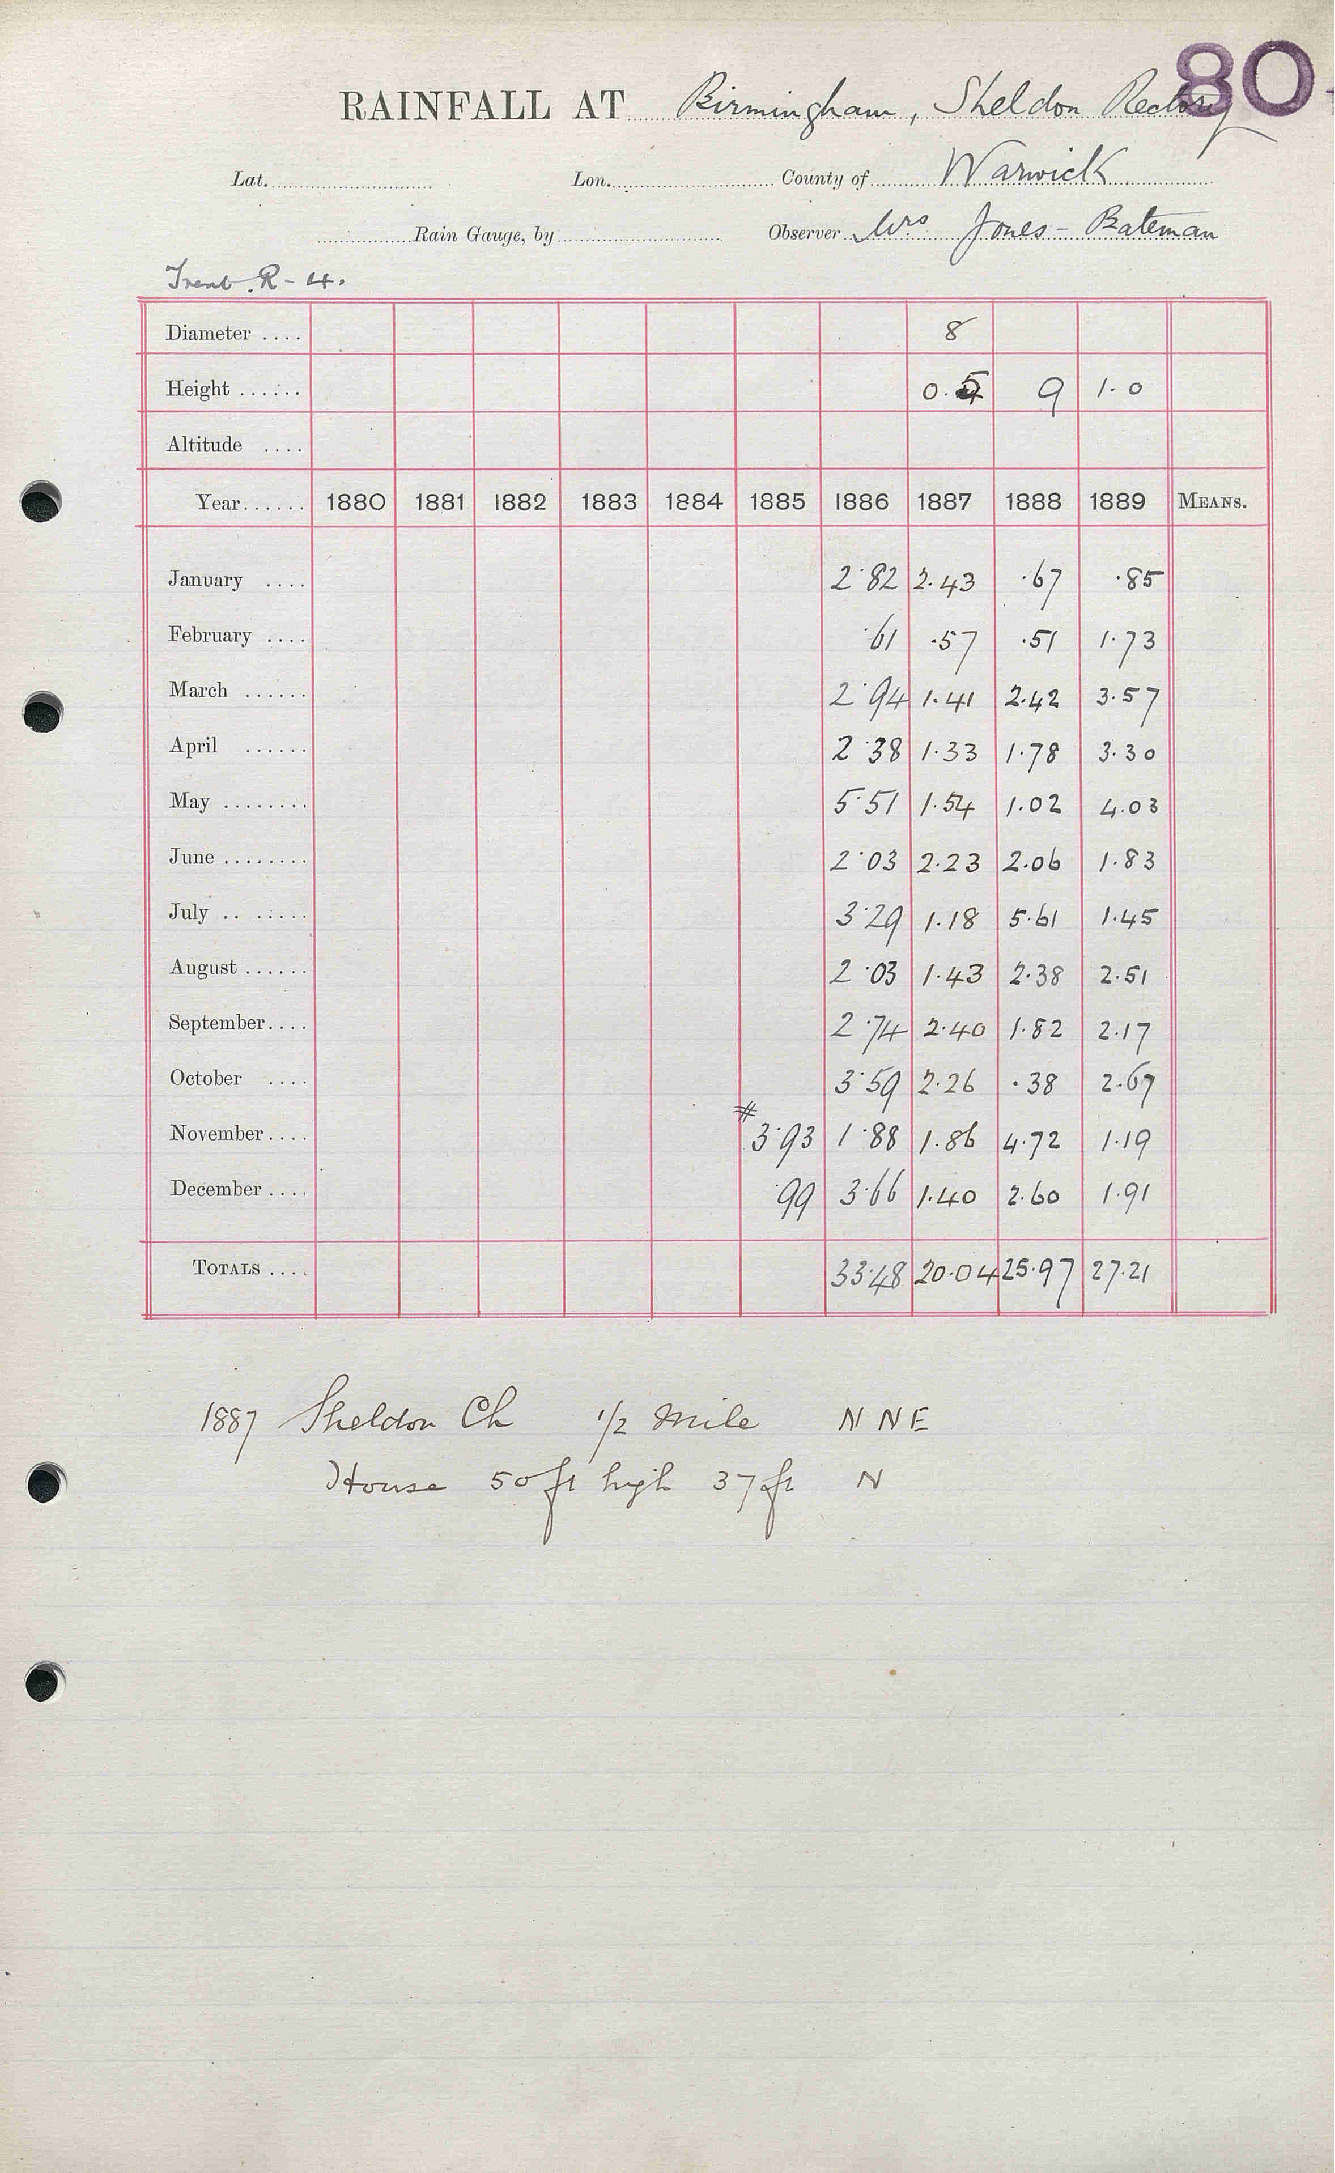 80
RAINFALL AT Birmingham, Sheldon Rectory
Lat. Lon. County of Warwick
Rain Gauge, by Observer Mrs Jones-Bateman
Trent. R-4.
Diameter .... 8
Height ...... 0.5 9 1.0
Altitude ....
Year...... 1880 1881 1882 1883 1884 1885 1886 1887 1888 1889 MEANS.
January .... 2.82 2.43 .67 .85
February .... .61 .57 .51 1.73
March ...... 2.94 1.41 2.42 3.57
April ...... 2.38 1.33 1.78 3.30
May ........ 5.51 1.54 1.02 4.03
June ........ 2.03 2.23 2.06 1.83
July .. ..... 3.29 1.18 5.61 1.45
August ...... 2.03 1.43 2.38 2.51
September.... 2.74 2.40 1.82 2.17
October .... 3.59 2.26 .38 2.67
November.... #3.93 1.88 1.86 4.72 1.19
December .... .99 3.66 1.40 2.60 1.91
TOTALS .... 33.48 20.04 25.97 27.21
1887 Sheldon Ch 1/2 Mile N N E
House 50 ft high 37 ft N